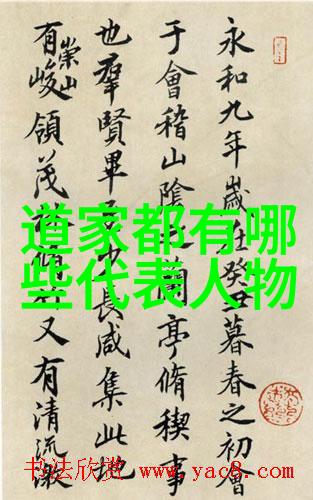 永和九年歲在癸丑暮春之初會
于會稽山陰之蘭亭脩稧事
也羣賢畢至少長咸集此地
有崇山峻領茂林脩竹又有清流激
道家都有哪
些代表人物
书法欣赏 www.yac8.com